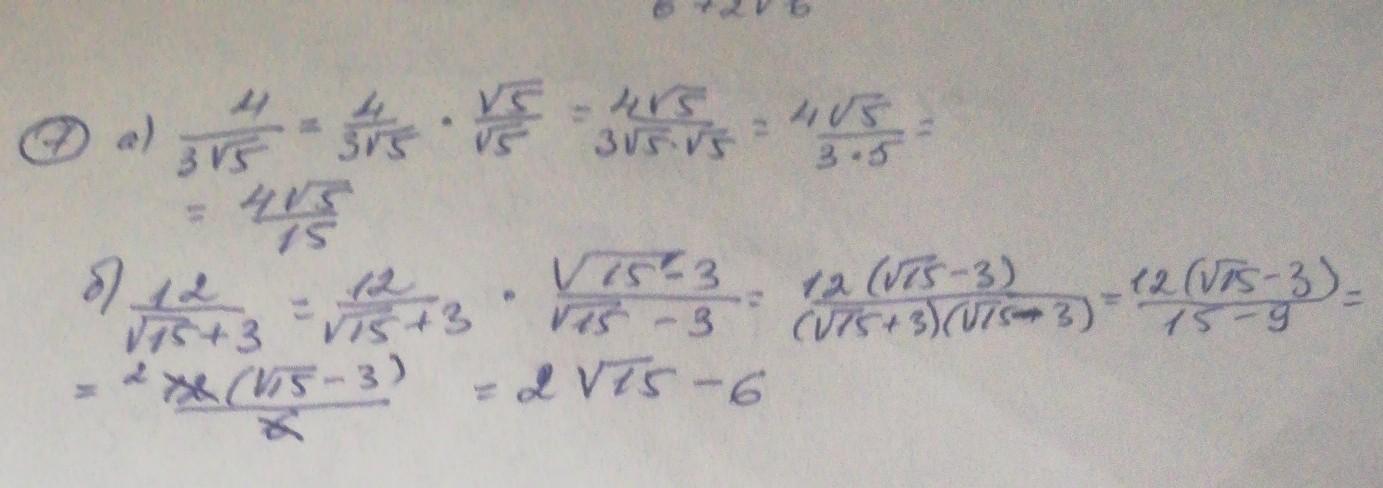 6 + 2√6
7 а) 4/(3√5) = 4/(3√5) · √5/√5 = 4√5/(3√5·√5) = 4√5/(3·5) =
= 4√5/15
б) 12/(√15+3) = 12/(√15+3) · (√15-3)/(√15-3) = 12(√15-3)/((√15+3)(√15-3)) = 12(√15-3)/(15-9) =
= 2 12(√15-3)/6 = 2√15 - 6